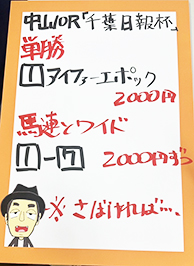 中山10R「千葉日報杯」
単勝
1 アイファーエポック
2000円
馬連とワイド
1-7 2000円ずつ
※さばければ…。